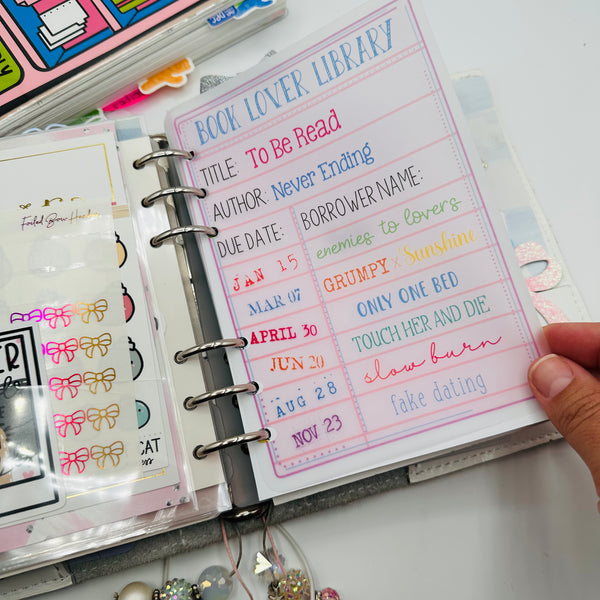 BOOK LOVER LIBRARY
TITLE: To Be Read
AUTHOR: Never Ending
DUE DATE: BORROWER NAME:
JAN 15 enemies to lovers
MAR 07 GRUMPY x Sunshine
APRIL 30 ONLY ONE BED
JUN 20 TOUCH HER AND DIE
AUG 28 slow burn
NOV 23 fake dating
Foiled Bow
CAT